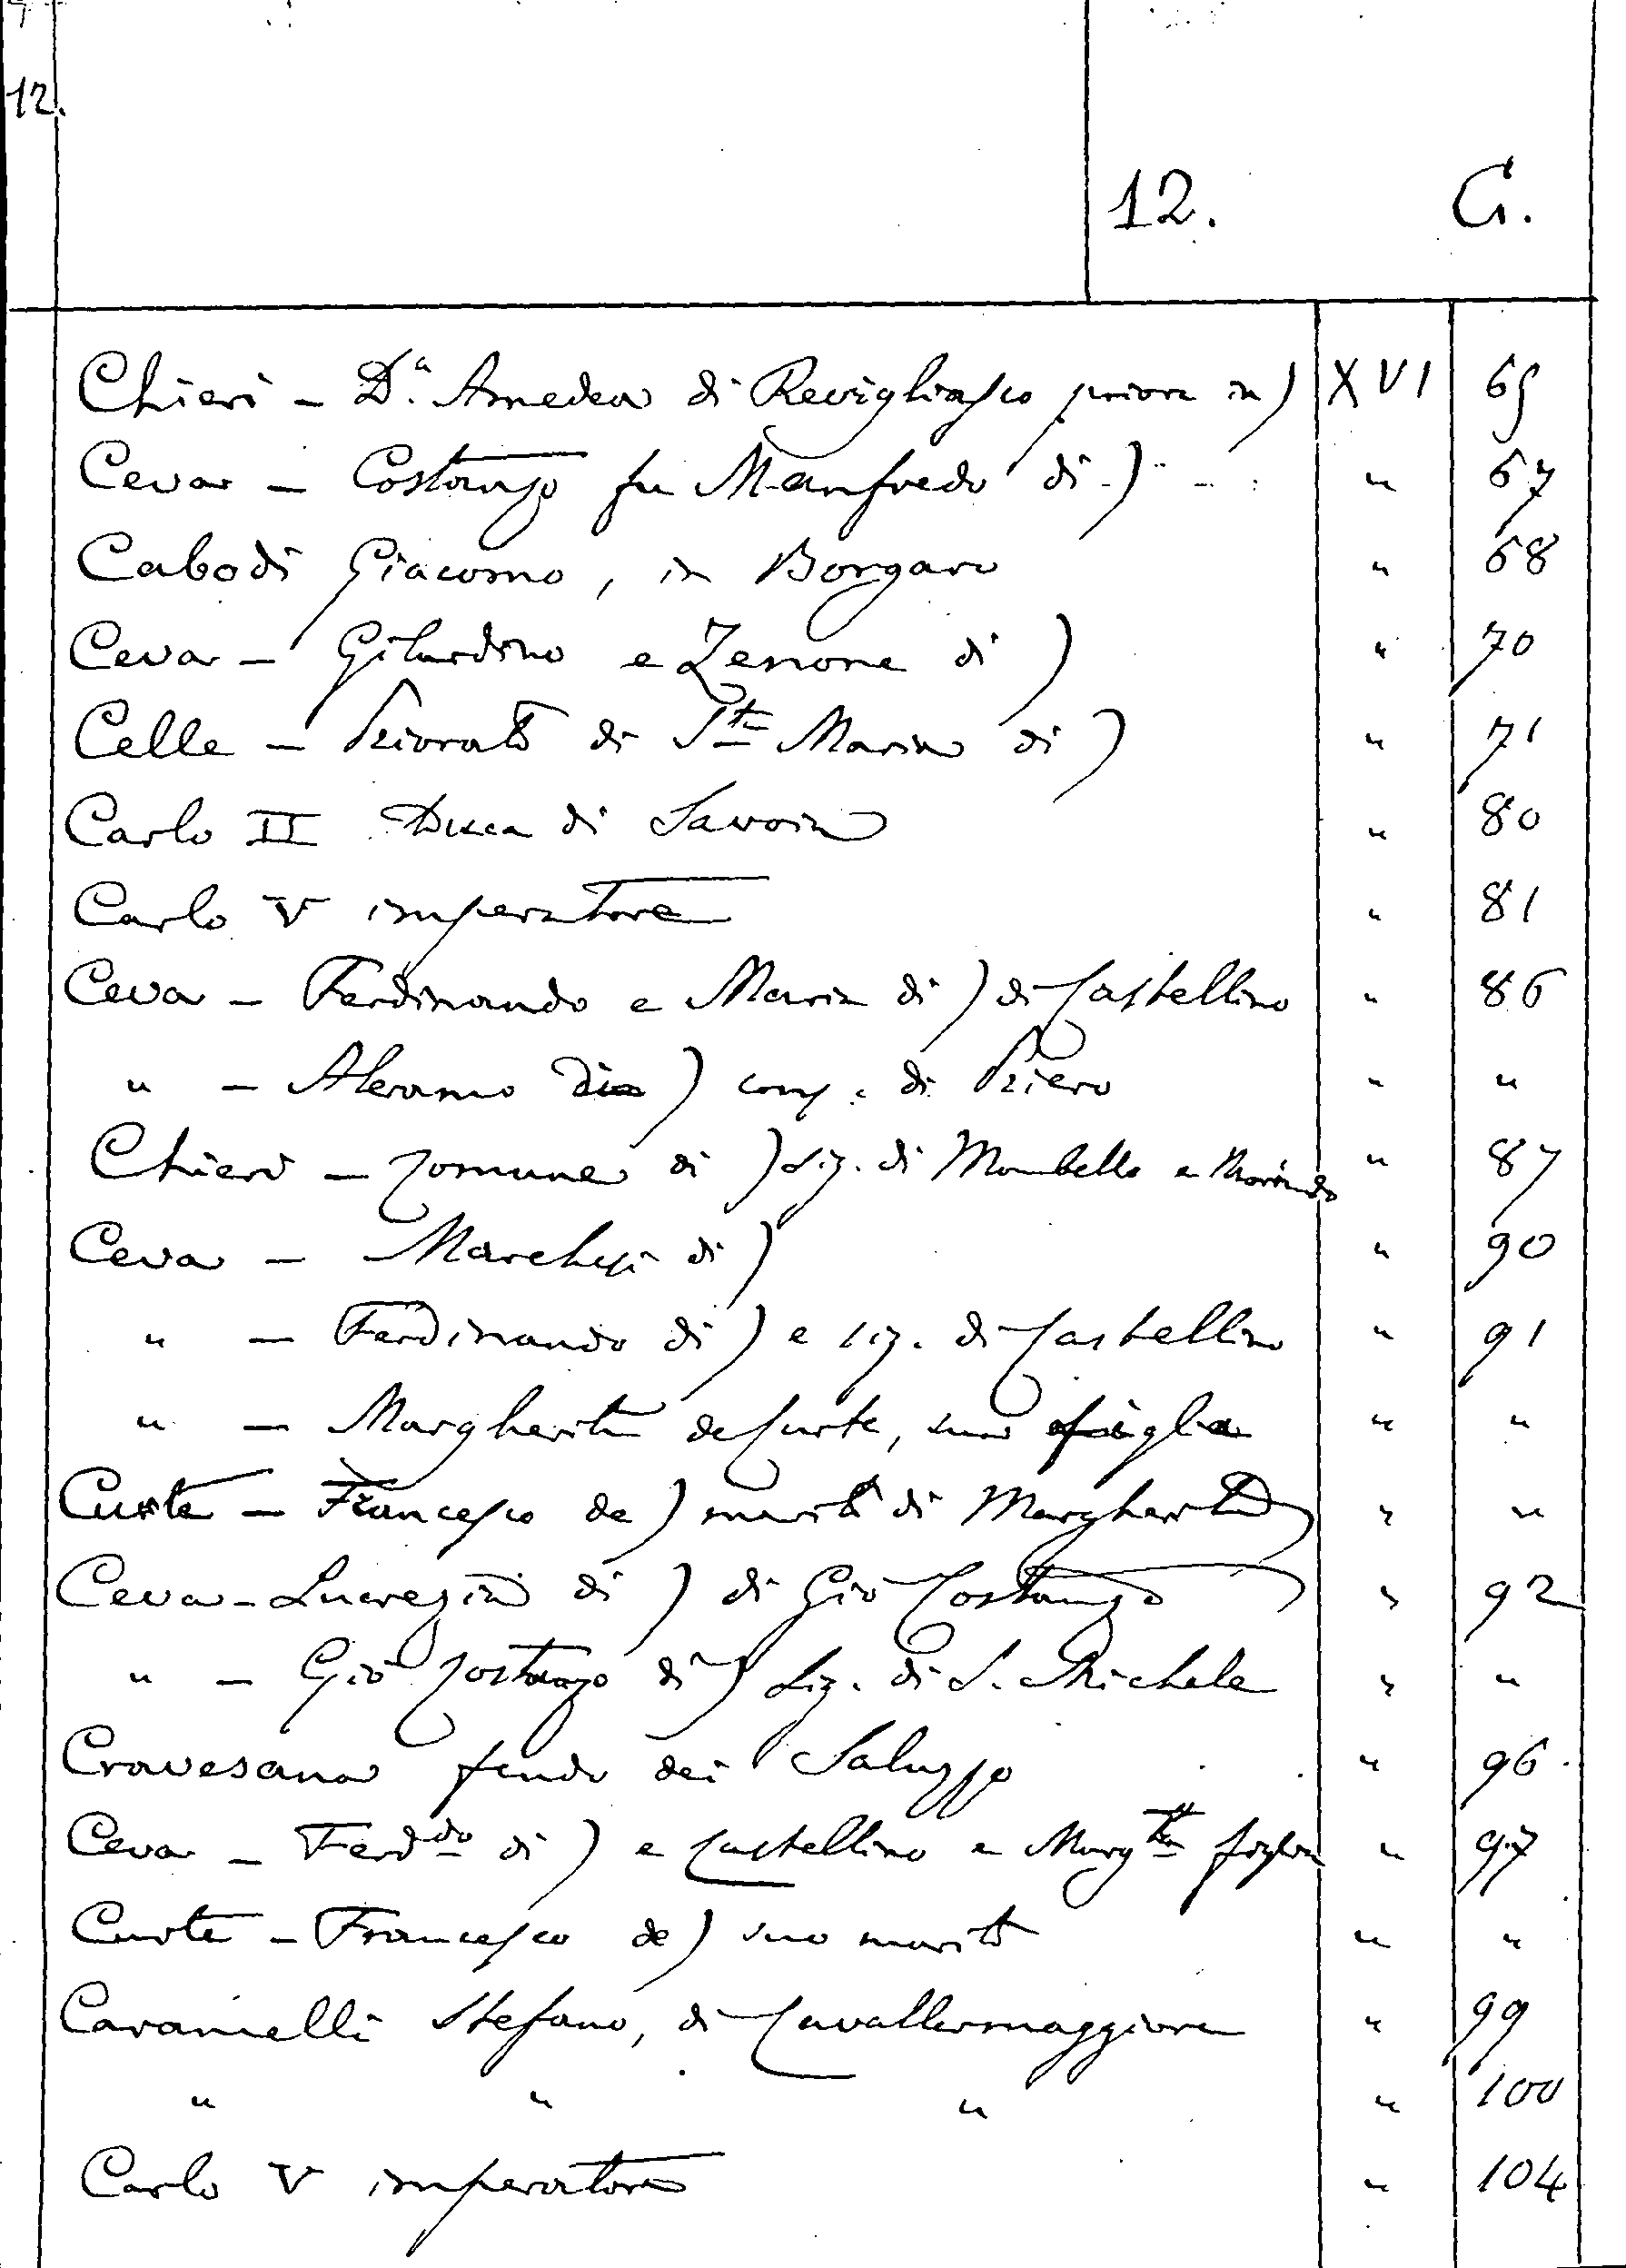 12.
12. C.
Chieri - D.a Amedea di Revigliasco priora in) XVI 65
Ceva - Costanzo fu Manfredo di) " 67
Cabodi Giacomo, in Borgaro " 68
Ceva - Gilardino e Zenone di) " 70
Celle - Priorato di Sta Maria di) " 71
Carlo II Duca di Savoia " 80
Carlo V imperatore " 81
Ceva - Ferdinando e Maria di) di Castellino " 86
" - Aleramo di) cons. di Priero " "
Chieri - Comune di) sig. di Mombello e Moriondo " 87
Ceva - Marchesi di) " 90
" - Ferdinando di) e sig. di Castellino " 91
" - Margherita de Curte, sua figlia " "
Curte - Francesco de) marito di Margherita " "
Ceva - Lucrezia di) di Gio Costanzo " 92
" - Gio Costanzo di) Sig. di S. Michele " "
Cravesana feudo dei Saluzzo " 96
Ceva - Ferd.do di) e Castellino e Marg.ta figlia " 97
Curte - Francesco de) suo marito " "
Caramelli Stefano, di Cavallermaggiore " 99
" " " " 100
Carlo V imperatore " 104